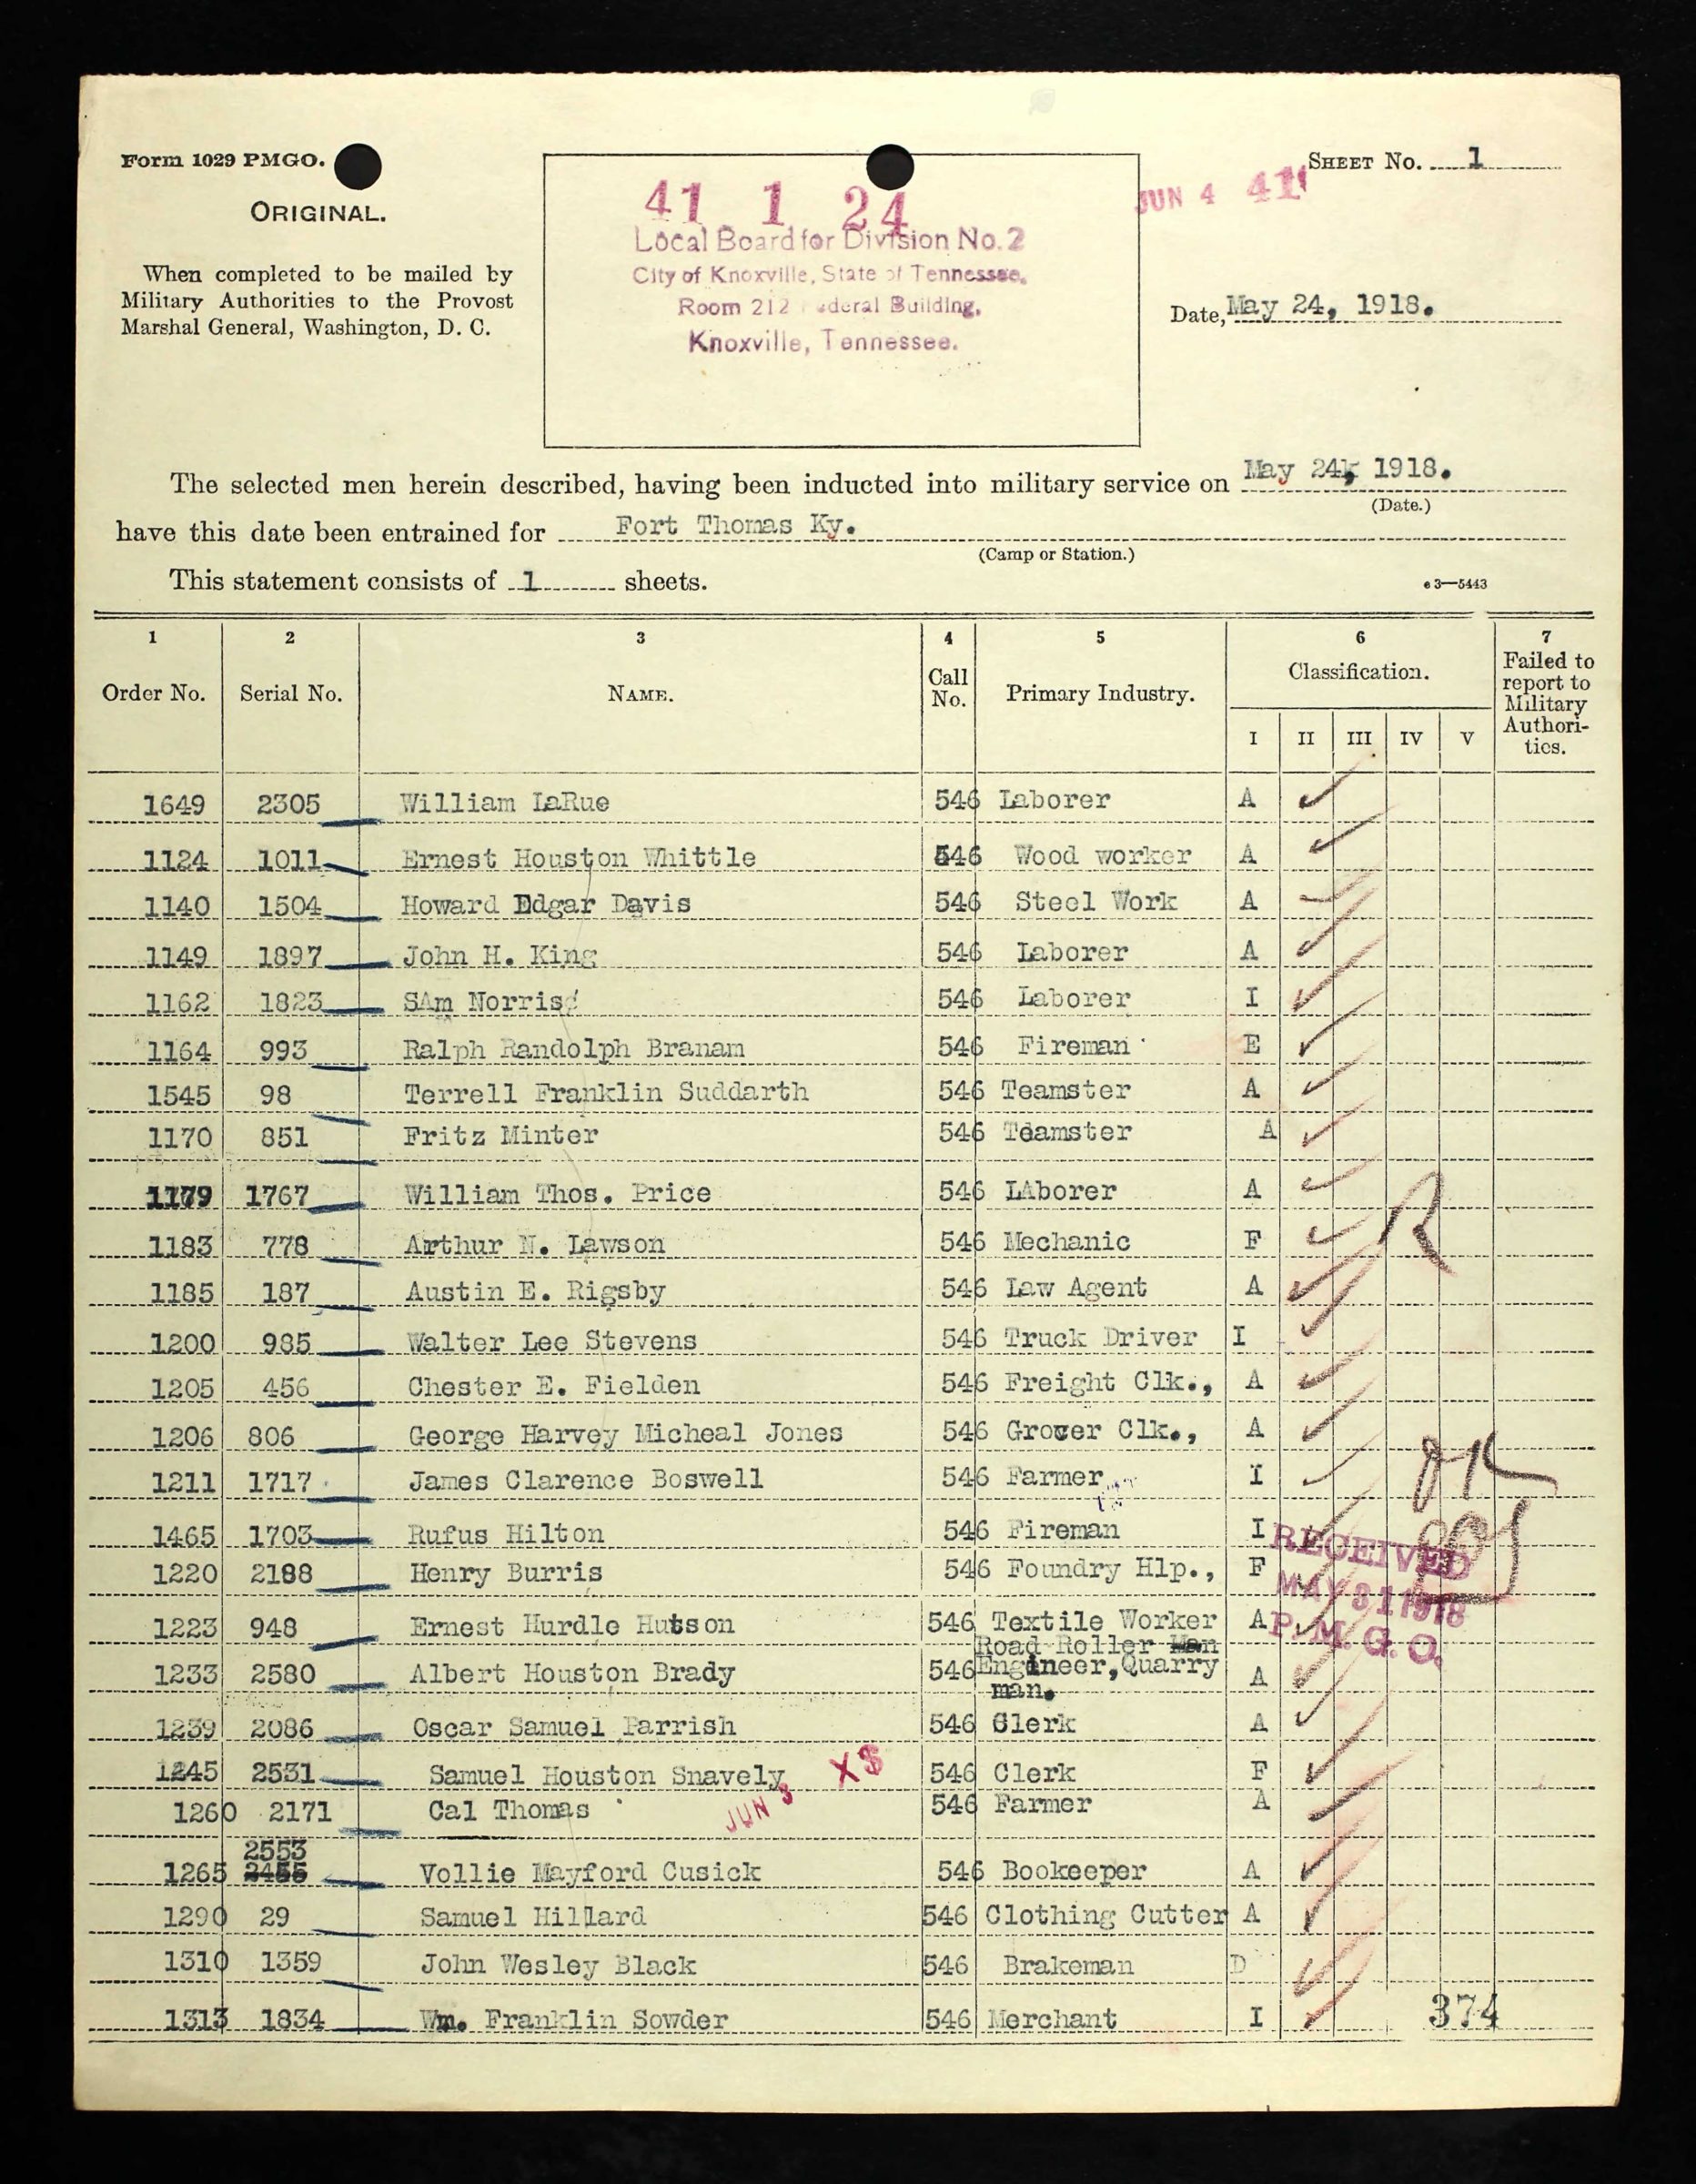 Form 1029 PMGO.
ORIGINAL.
When completed to be mailed by
Military Authorities to the Provost
Marshal General, Washington, D. C.
41 1 24
Local Board for Division No. 2
City of Knoxville, State of Tennessee.
Room 212 Federal Building,
Knoxville, Tennessee.
SHEET No. 1
JUN 4 41
Date, May 24, 1918.
The selected men herein described, having been inducted into military service on May 24, 1918.
(Date.)
have this date been entrained for Fort Thomas Ky.
(Camp or Station.)
This statement consists of 1 sheets.
e 3—5443
1 2 3 4 5 6 7
Order No. Serial No. NAME. Call No. Primary Industry. Classification. Failed to report to Military Authorities.
I II III IV V
1649 2305 William LaRue 546 Laborer A
1124 1011 Ernest Houston Whittle 546 Wood worker A
1140 1504 Howard Edgar Davis 546 Steel Work A
1149 1897 John H. King 546 Laborer A
1162 1823 SAm Norris 546 Laborer I
1164 993 Ralph Randolph Branam 546 Fireman E
1545 98 Terrell Franklin Suddarth 546 Teamster A
1170 851 Fritz Minter 546 Teamster A
1179 1767 William Thos. Price 546 LAborer A
R
1183 778 Arthur N. Lawson 546 Mechanic F
1185 187 Austin E. Rigsby 546 Law Agent A
1200 985 Walter Lee Stevens 546 Truck Driver I
1205 456 Chester E. Fielden 546 Freight Clk., A
1206 806 George Harvey Micheal Jones 546 Grocer Clk., A
1211 1717 James Clarence Boswell 546 Farmer I
OK
1465 1703 Rufus Hilton 546 Fireman I
RECEIVED
1220 2188 Henry Burris 546 Foundry Hlp., F
MAY 31 1918
1223 948 Ernest Hurdle Hutson 546 Textile Worker A
P. M. G. O.
Road Roller Man
1233 2580 Albert Houston Brady 546 Engineer, Quarry A
man.
1239 2086 Oscar Samuel Parrish 546 Clerk A
1245 2531 Samuel Houston Snavely 546 Clerk F
X8
1260 2171 Cal Thomas 546 Farmer A
JUN 3
2553
1265 2455 Vollie Mayford Cusick 546 Bookeeper A
1290 29 Samuel Hillard 546 Clothing Cutter A
1310 1359 John Wesley Black 546 Brakeman D
1313 1834 Wm. Franklin Sowder 546 Merchant I
374